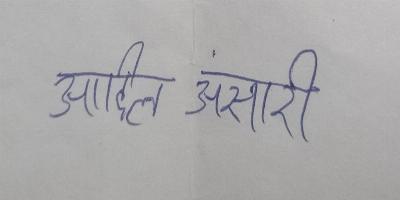 आदिल अंसारी